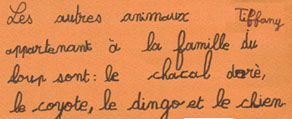 Les autres animaux Tiffany
appartenant à la famille du
loup sont: le chacal dorè,
le coyote, le dingo et le chien